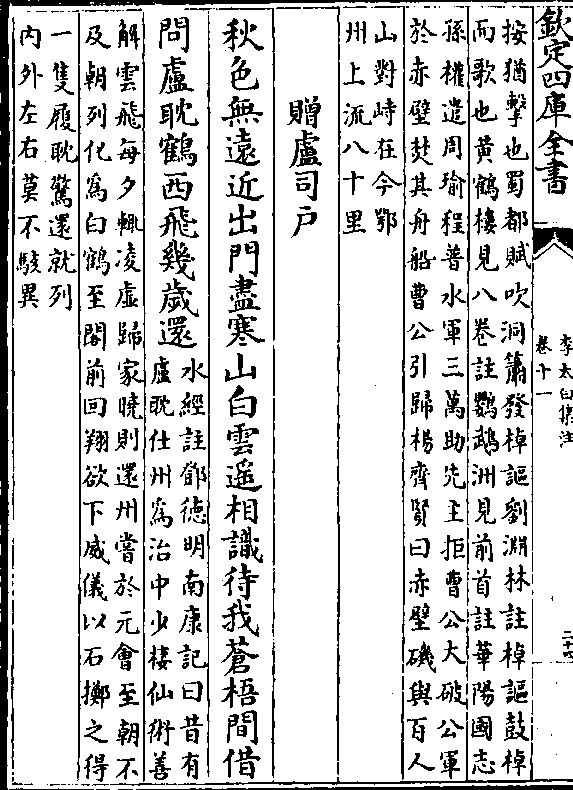 欽定四庫全書
李太白集注
卷十一
二十四
按猶擊也蜀都賦吹洞簫發棹謳劉淵林註棹謳鼓棹
而歌也黃鶴樓見八卷註鸚鵡洲見前首註華陽國志
孫權遣周瑜程普水軍三萬助先主拒曹公大破公軍
於赤壁焚其舟船曹公引歸楊齊賢曰赤壁磯與百人
山對峙在今鄂
州上流八十里
贈盧司戶
秋色無遠近出門盡寒山白雲遥相識待我蒼梧間借
問盧耽鶴西飛幾歲還
水經註鄧德明南康記曰昔有
盧耽仕州爲治中少棲仙術善
解雲飛每夕輒凌虛歸家曉則還州嘗於元會至朝不
及朝列化爲白鶴至閣前回翔欲下威儀以石擲之得
一隻履耽驚還就列
内外左右莫不駭異